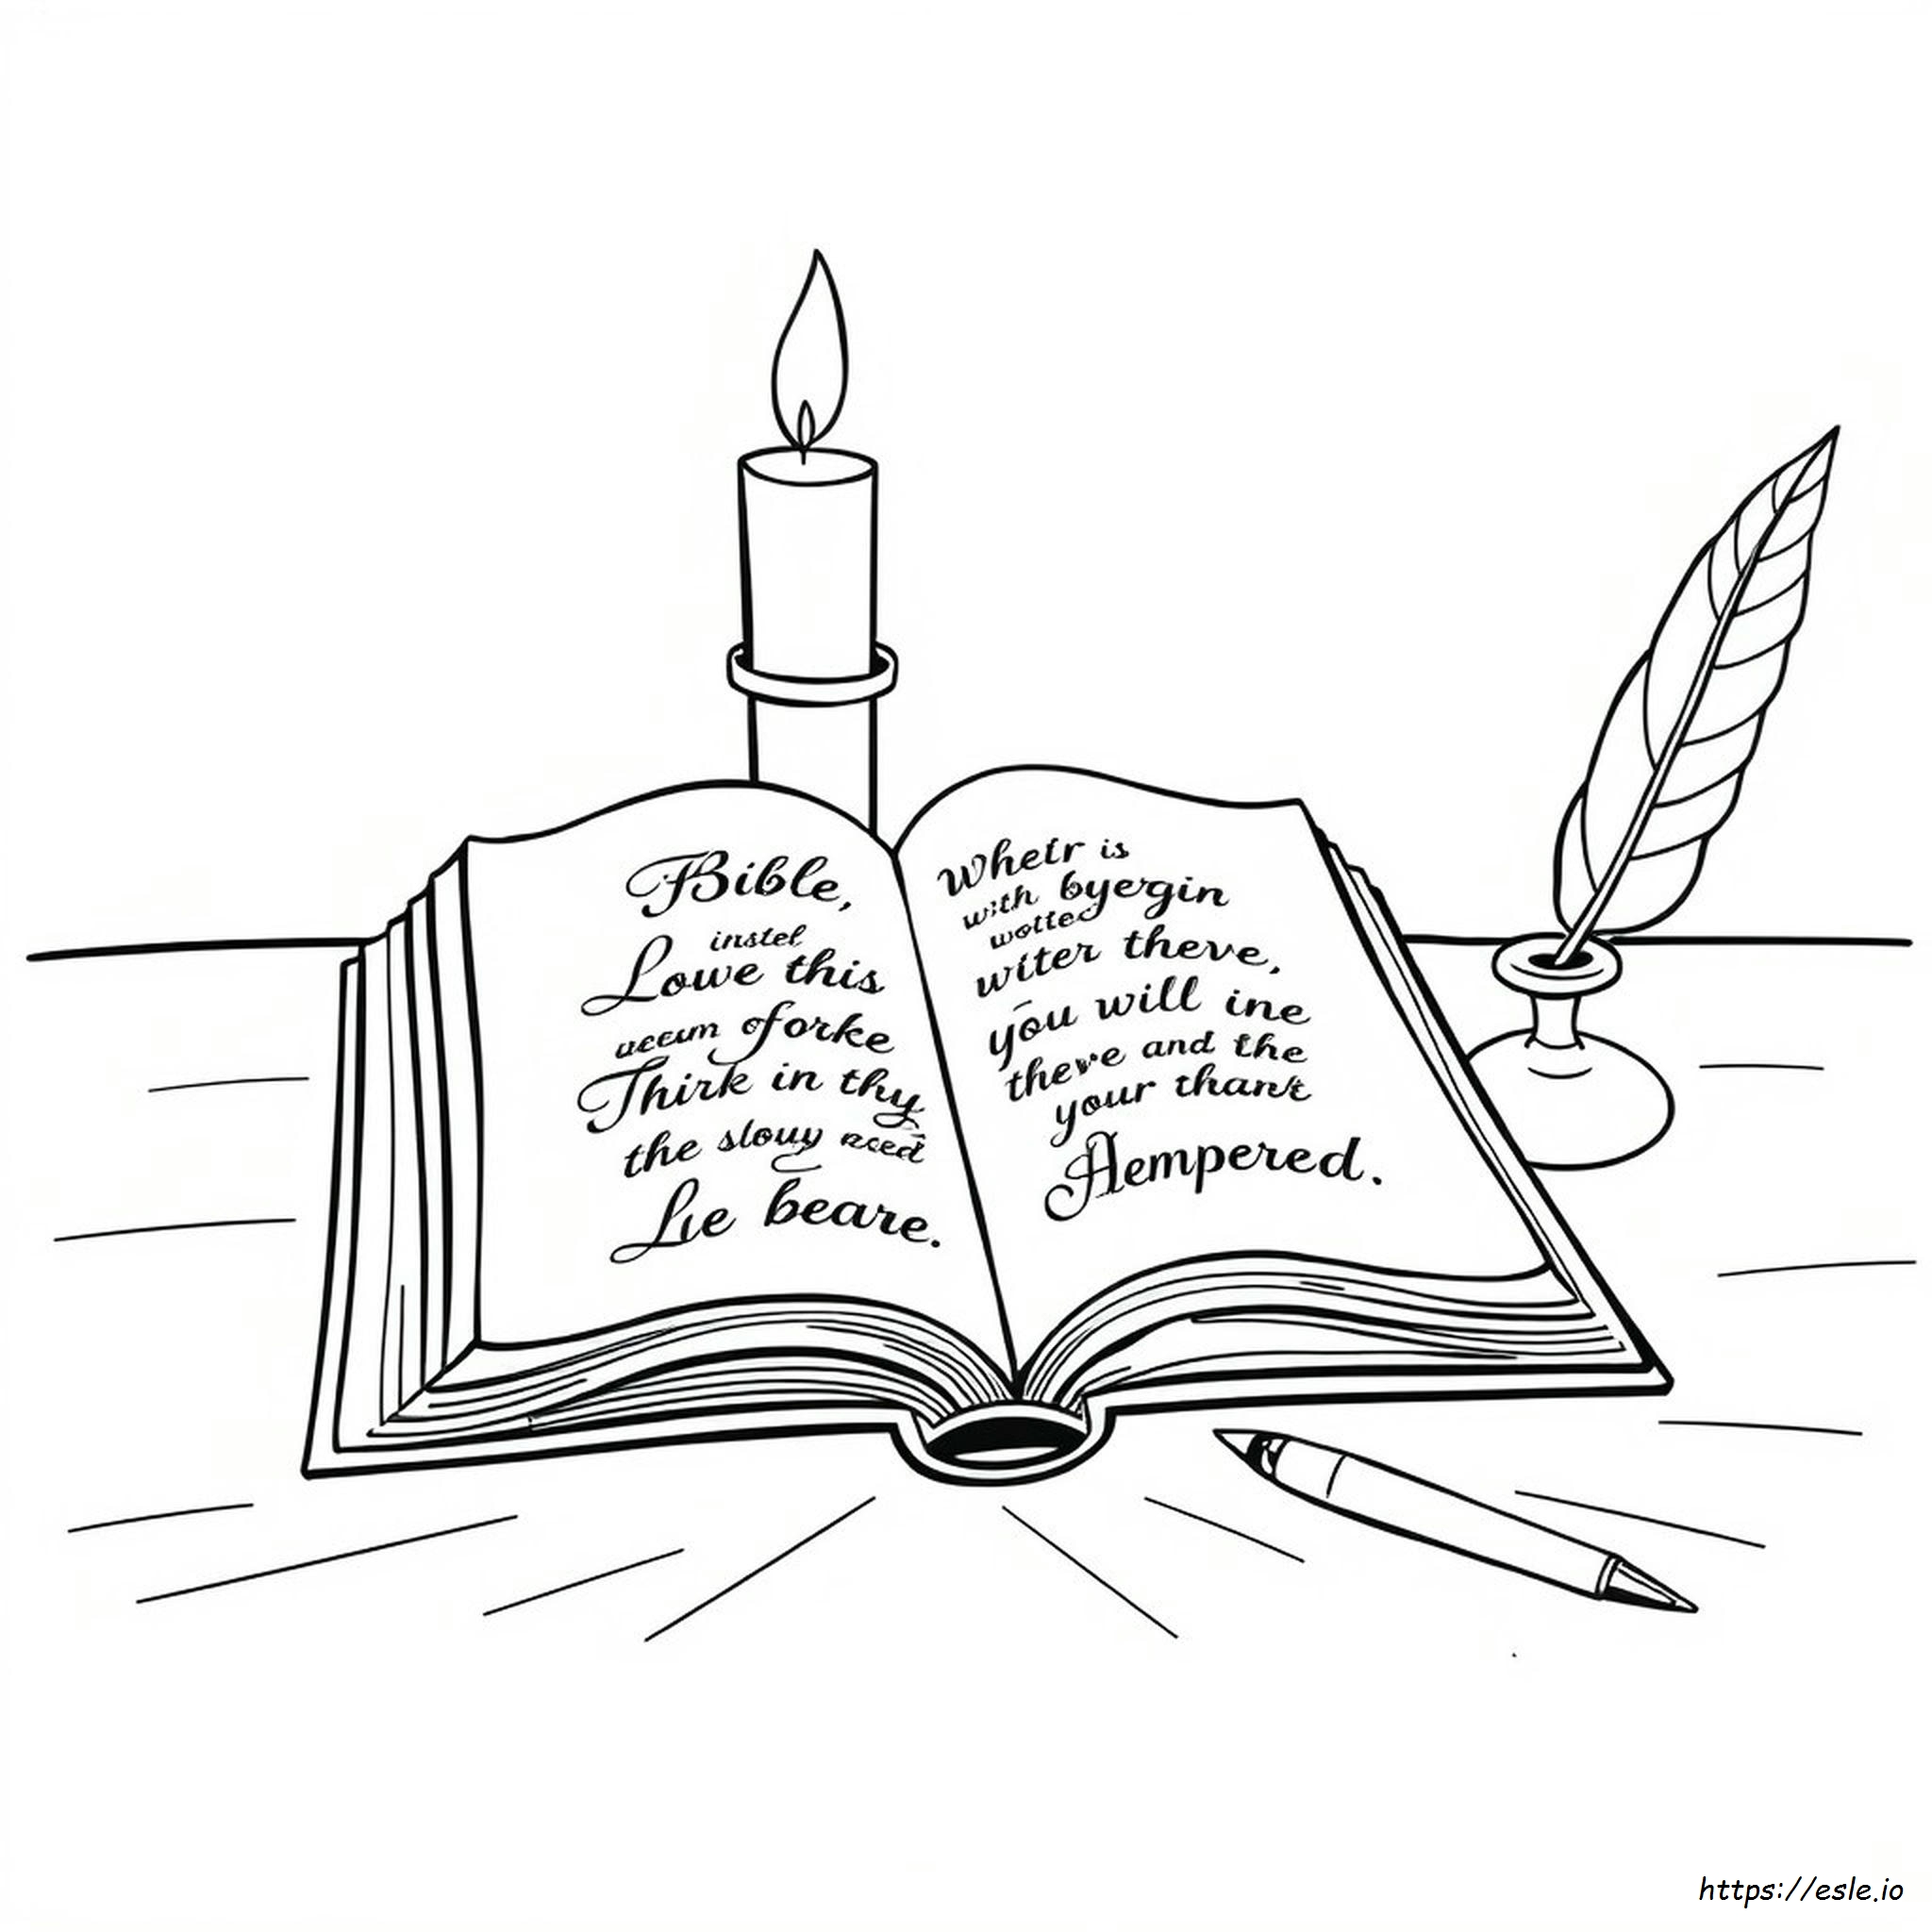 Bible,
instel
Lowe this
uccum oforke
Thirk in thy
the slouy
Lie beare.
Whetr is
with byergin
wotted
witer theve,
you will ine
theve and the
your thant
Hempered.
https://esle.io